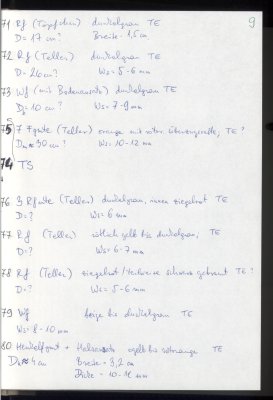 9
71 Rf (Töpfchen) dunkelgrau TE
D= 17 cm? Breite = 1,5 cm
72 Rf (Teller) dunkelgrau TE
D= 26 cm? Ws = 5-6 mm
73 Wf (mit Bodenansatz) dunkelgrau TE
D= 10 cm? Ws = 7-9 mm
75 7 Fgmte (Teller) orange mit roter TE ?
≈ 30 cm? Ws = 10-12 mm
74 TS
76 3 Rfgmte (Teller) dunkelgrau, innen ziegelrot TE
D= ? Ws = 6 mm
77 Rf (Teller) rötlich gelb bis dunkelgrau; TE
D= ? Ws = 6-7 mm
78 Rf (Teller) ziegelrot/teilweise schwarz gebrannt TE ?
D= ? Ws = 5-6 mm
79 Wf beige bis dunkelgrau TE
Ws = 8-10 mm
80 Henkelfgmt + Halsansatz bis TE
≈ 4 cm Breite = 3,2 cm
Dicke = 10-11 mm